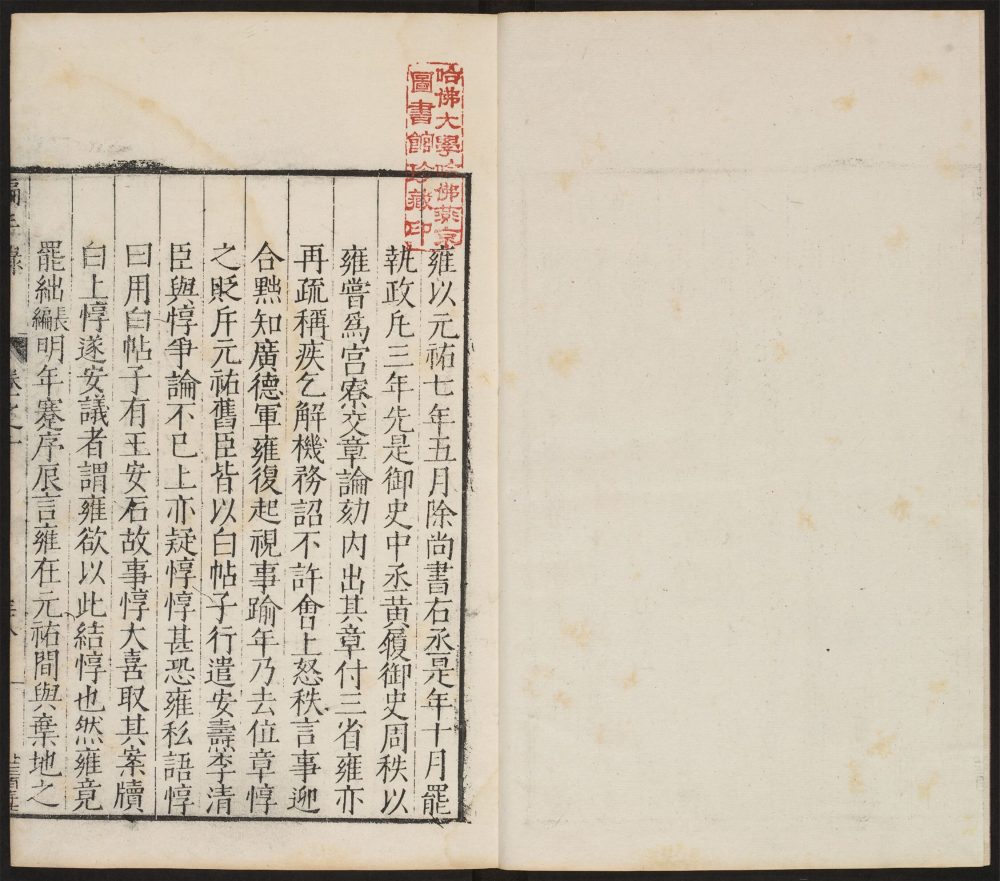 哈佛大學哈佛燕京
圖書館珍藏印
雍以元祐七年五月除尚書右丞是年十月罷
執政凡三年先是御史中丞黃履御史周秩以
雍嘗爲宮寮交章論劾內出其章付三省雍亦
再疏稱疾乞解機務詔不許會上怒秩言事迎
合黜知廣德軍雍復起視事踰年乃去位章惇
之貶斥元祐舊臣皆以白帖子行遣安燾李清
臣與惇爭論不已上亦疑惇惇甚恐雍私語惇
曰用白帖子有王安石故事惇大喜取其案牘
白上惇遂安議者謂雍欲以此結惇也然雍竟
罷絀長編明年蹇序辰言雍在元祐間與棄地之
卷之十